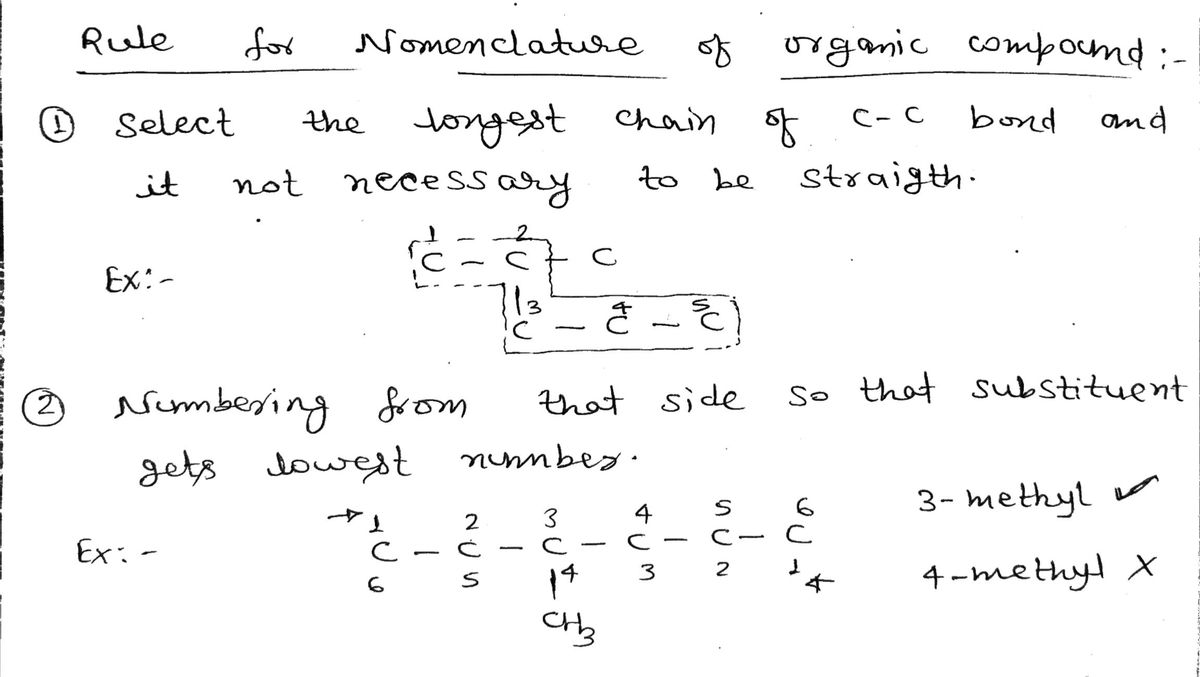 Rule for Nomenclature of organic compound :-
① Select the longest chain of C-C bond and
it not necessary to be straigth.
1 2
Ex:- C - C - C
3 4 5
C - C - C
② Numbering from that side so that substituent
gets lowest number.
3-methyl ✓
→1 2 3 4 5 6
Ex:- C - C - C - C - C - C
6 5 4 3 2 1←
4-methyl X
CH3